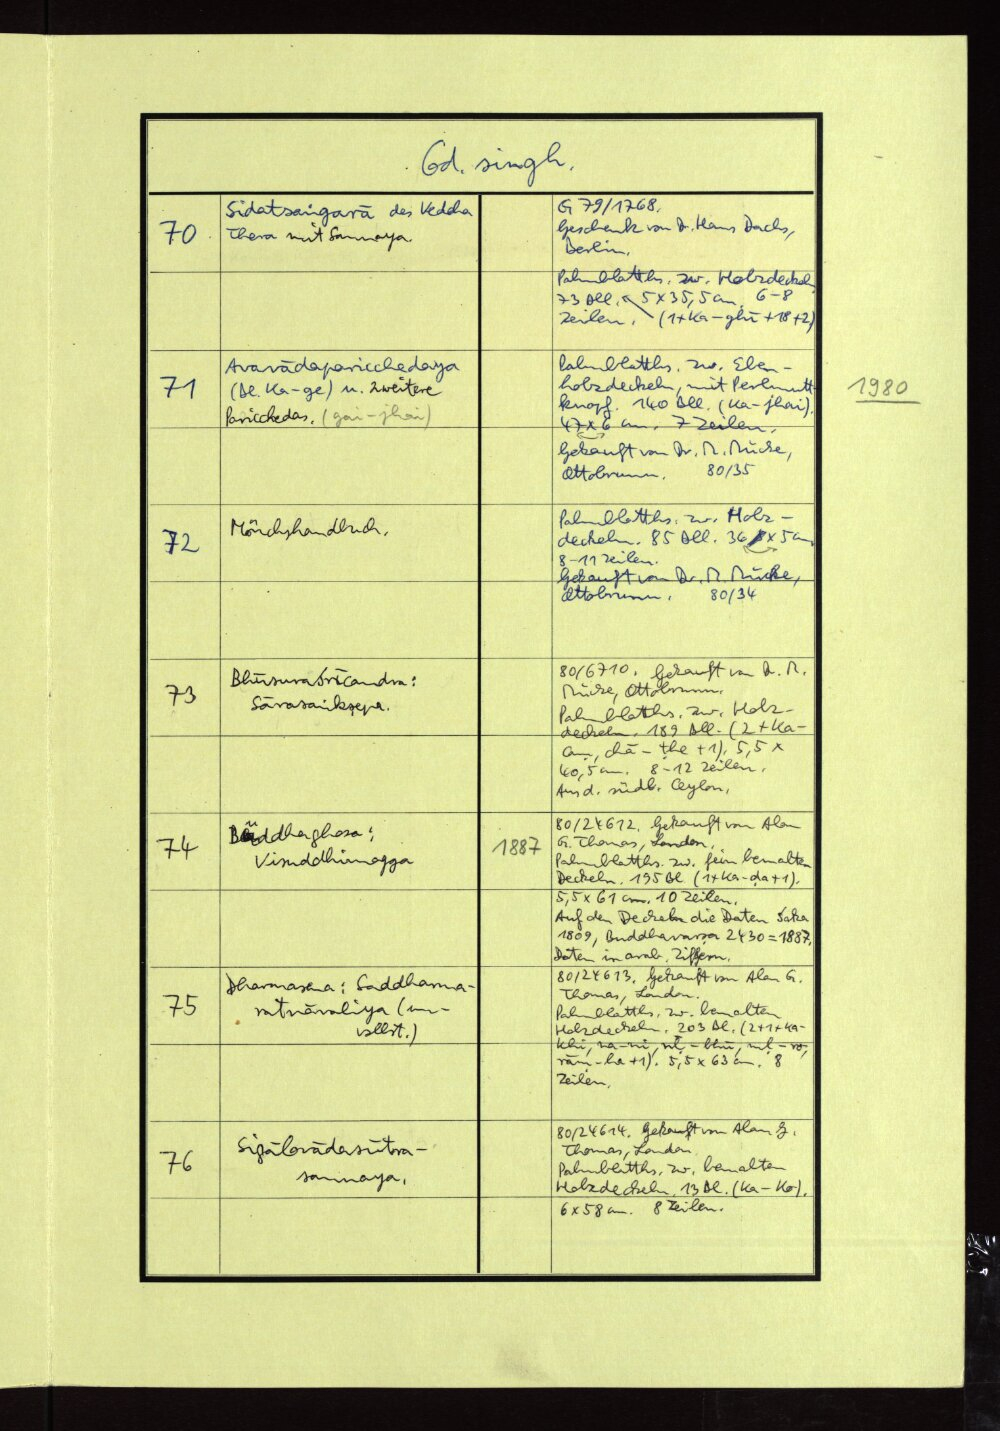 Cod. singh.
70
Sidatsaṅgarā des Vedeha
Thera mit Sannaya.
G 79/1768.
Geschenk von Dr. Hans Dachs,
Berlin.
Palmblatths. zw. Holzdeckeln
73 Bll. 5 x 35,5 cm. 6-8
Zeilen. (1+Ka-ghū+18+2)
71
Avavādaparicchedaya
(Bl. Ka-ge) u. zweitere
Paricchedas. (gai-jhai)
Palmblatths. zw. Eben-
holzdeckeln, mit Perlmutt-
knopf. 140 Bll. (Ka-jhai).
47x6 cm. 7 Zeilen.
Gekauft von Dr. R. Mücke,
Ottobrunn. 80/35
1980
72
Mönchshandbuch.
Palmblatths. zw. Holz-
deckeln. 85 Bll. 36 x 5 cm
8-11 Zeilen.
Gekauft von Dr. R. Mücke,
Ottobrunn. 80/34
73
Bhūsuraśrīcandra:
Sārasaṅkṣepa.
80/6710. Gekauft von Dr. R.
Mücke, Ottobrunn.
Palmblatths. zw. Holz-
deckeln. 189 Bll. (2+Ka-
cam, chā-the+1). 5,5 x
40,5 cm. 8-12 Zeilen.
Aus d. südl. Ceylon.
74
Buddhaghosa:
Visuddhimagga
1887
80/24612. Gekauft von Alan
G. Thomas, London.
Palmblatths. zw. fein bemalten
Deckeln. 195 Bl. (1+Ka-ḍa+1).
5,5 x 61 cm. 10 Zeilen.
Auf den Deckeln die Daten Śaka
1809, Buddhavarṣa 2430 = 1887.
Daten in arab. Ziffern.
75
Dharmasena: Saddharma-
ratnāvaliya (un-
vollst.)
80/24613. Gekauft von Alan G.
Thomas, London.
Palmblatths. zw. bemalten
Holzdeckeln. 203 Bl. (2+1+Ka-
ha+1). 5,5 x 63 cm. 8
Zeilen.
76
Sigālovādasūtra-
sannaya.
80/24614. Gekauft von Alan G.
Thomas, London.
Palmblatths. zw. bemalten
Holzdeckeln. 13 Bl. (Ka-Ko).
6 x 58 cm. 8 Zeilen.